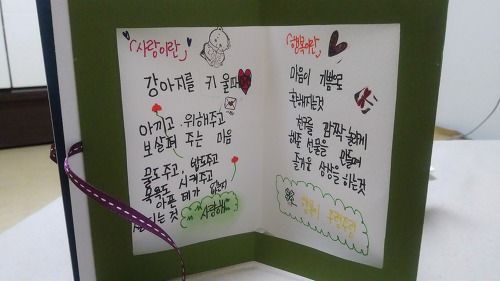 사랑이란
강아지를 키울때
아끼고 위해주고
보살펴 주는 마음
물도주고, 밥도주고
목욕도 시켜주고
아픈데가 없는지
는 것
사랑해
행복이란
마음이 기쁨으로
환해지는것
친구를 깜짝 놀라게
해줄 선물을 만들며
즐거운 상상을 하는것
행복이 주렁주렁